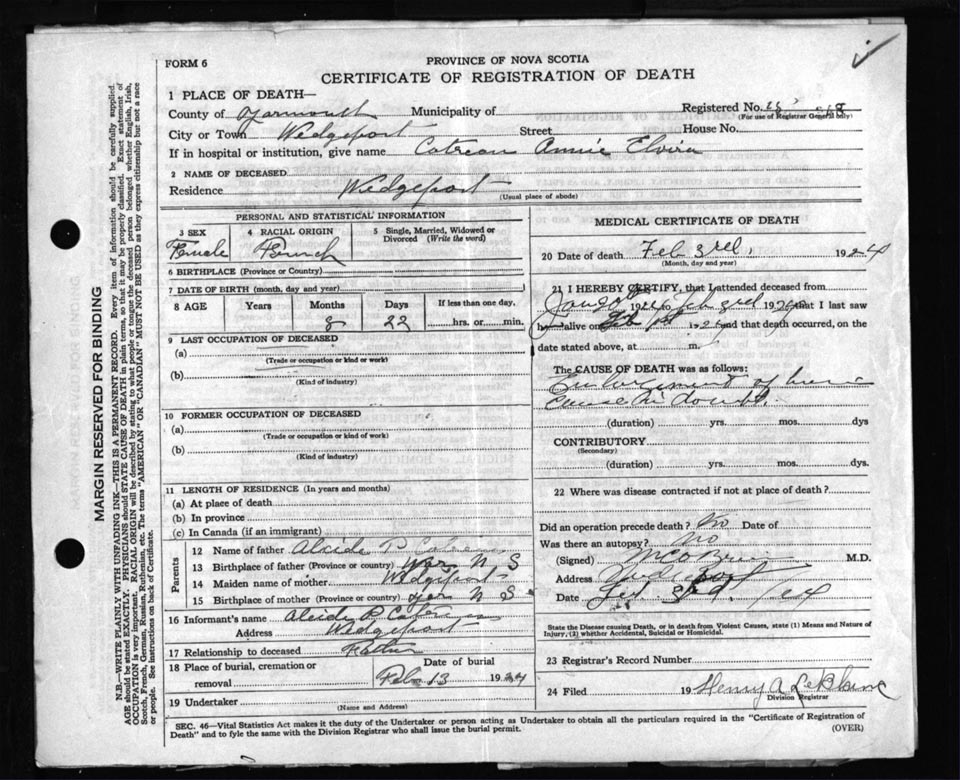 FORM 6
PROVINCE OF NOVA SCOTIA
CERTIFICATE OF REGISTRATION OF DEATH
1 PLACE OF DEATH—
County of Yarmouth Municipality of Registered No.
(For use of Registrar General only)
City or Town Wedgeport Street House No.
If in hospital or institution, give name Cotreau Annie Elvira
2 NAME OF DECEASED
Residence Wedgeport
(Usual place of abode)
PERSONAL AND STATISTICAL INFORMATION
3 SEX 4 RACIAL ORIGIN 5 Single, Married, Widowed or Divorced (Write the word)
Female French
6 BIRTHPLACE (Province or Country)
7 DATE OF BIRTH (month, day and year)
8 AGE Years Months Days If less than one day,
8 22 hrs. or min.
9 LAST OCCUPATION OF DECEASED
(a)
(Trade or occupation or kind of work)
(b)
(Kind of industry)
10 FORMER OCCUPATION OF DECEASED
(a)
(Trade or occupation or kind of work)
(b)
(Kind of industry)
11 LENGTH OF RESIDENCE (In years and months)
(a) At place of death
(b) In province
(c) In Canada (if an immigrant)
Parents
12 Name of father Alcide P
13 Birthplace of father (Province or country) N S
14 Maiden name of mother Wedgeport
15 Birthplace of mother (Province or country) Yar N S
16 Informant's name Alcide P
Address Wedgeport
17 Relationship to deceased Father
18 Place of burial, cremation or removal Date of burial
Feb 13 1924
19 Undertaker
(Name and Address)
MEDICAL CERTIFICATE OF DEATH
20 Date of death Feb 3rd, 1924
(Month, day and year)
21 I HEREBY CERTIFY, that I attended deceased from
Feb 3rd 192 that I last saw
alive on Feb 192 and that death occurred, on the
date stated above, at m.
The CAUSE OF DEATH was as follows:
Enlargement of
Cause in doubt.
(duration) yrs. mos. dys
CONTRIBUTORY
(Secondary)
(duration) yrs. mos. dys.
22 Where was disease contracted if not at place of death?
Did an operation precede death? No Date of
Was there an autopsy? No
(Signed) M.D.
Address
Date
State the Disease causing Death, or in death from Violent Causes, state (1) Means and Nature of
Injury, (2) whether Accidental, Suicidal or Homicidal.
23 Registrar's Record Number
24 Filed 19 Henry A LeBlanc
Division Registrar
SEC. 46—Vital Statistics Act makes it the duty of the Undertaker or person acting as Undertaker to obtain all the particulars required in the "Certificate of Registration of
Death" and to fyle the same with the Division Registrar who shall issue the burial permit. (OVER)
MARGIN RESERVED FOR BINDING
N.B.—WRITE PLAINLY WITH UNFADING INK—THIS IS A PERMANENT RECORD. Every item of information should be carefully supplied.
AGE should be stated EXACTLY. PHYSICIANS should STATE CAUSE OF DEATH in plain terms, so that it may be properly classified. Exact statement of
OCCUPATION is very important. RACIAL ORIGIN will be described by stating to what people or tongue the deceased person belonged whether English, Irish,
Scotch, French, German, Russian, Ruthenian, etc. The terms "AMERICAN" OR "CANADIAN" MUST NOT BE USED as they express citizenship but not a race
or people. See instructions on back of Certificate.